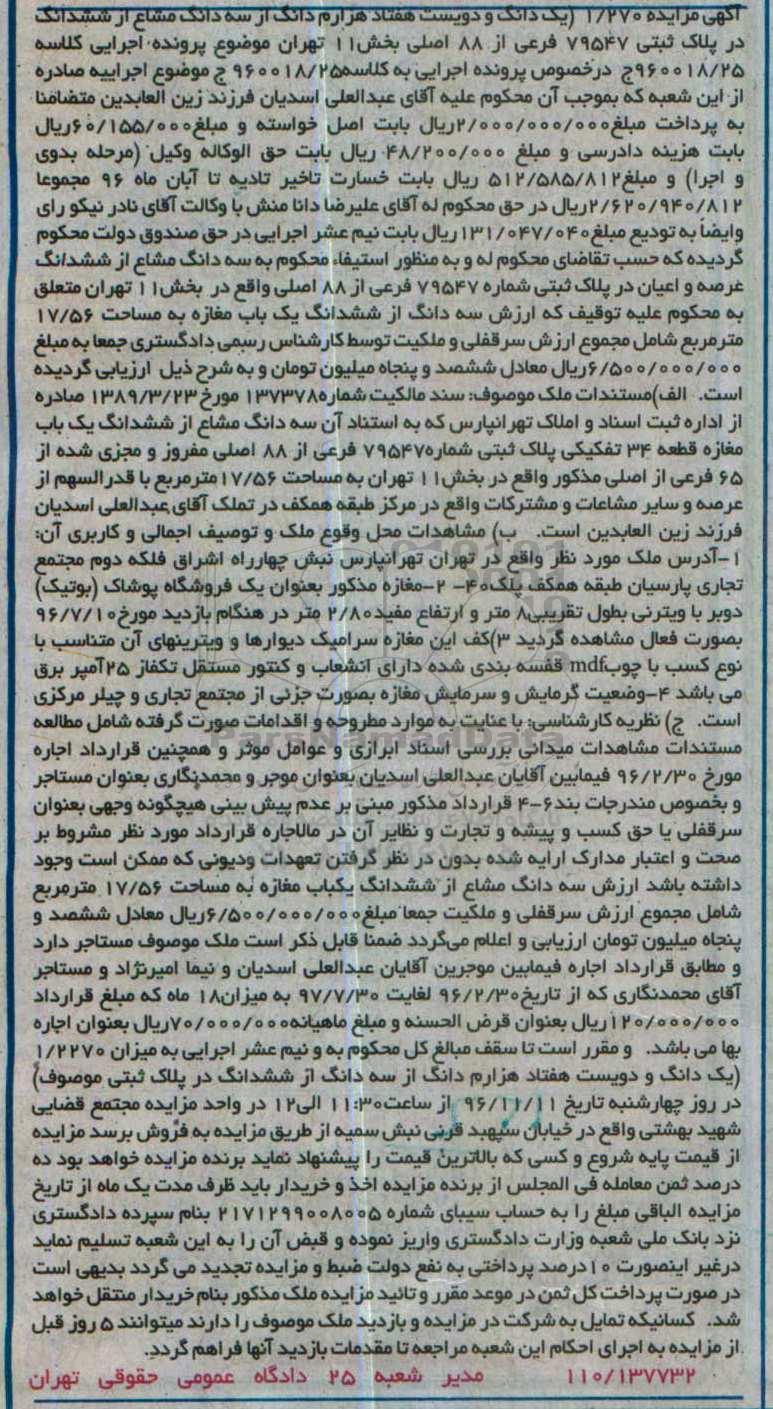 آگهی مزایده ۱/۲۷۰ (یک دانگ و دویست هفتاد هزارم دانگ از سه دانگ مشاع از ششدانگ
در پلاک ثبتی ۷۹۵۴۷ فرعی از ۸۸ اصلی بخش۱۱ تهران موضوع پرونده اجرایی کلاسه
۹۶۰۰۱۸/۲۵ج درخصوص پرونده اجرایی به کلاسه۹۶۰۰۱۸/۲۵ ج موضوع اجراییه صادره
از این شعبه که بموجب آن محکوم علیه آقای عبدالعلی اسدیان فرزند زین العابدین متضامنا
به پرداخت مبلغ۲/۰۰۰/۰۰۰/۰۰۰ریال بابت اصل خواسته و مبلغ۶۰/۱۵۵/۰۰۰ریال
بابت هزینه دادرسی و مبلغ ۴۸/۲۰۰/۰۰۰ ریال بابت حق الوکاله وکیل (مرحله بدوی
و اجرا) و مبلغ۵۱۲/۵۸۵/۸۱۲ ریال بابت خسارت تاخیر تادیه تا آبان ماه ۹۶ مجموعا
۲/۶۲۰/۹۴۰/۸۱۲ریال در حق محکوم له آقای علیرضا دانا منش با وکالت آقای نادر نیکو رای
وایضا به تودیع مبلغ۱۳۱/۰۴۷/۰۴۰ریال بابت نیم عشر اجرایی در حق صندوق دولت محکوم
گردیده که حسب تقاضای محکوم له و به منظور استیفاء محکوم به سه دانگ مشاع از ششدانگ
عرصه و اعیان در پلاک ثبتی شماره ۷۹۵۴۷ فرعی از ۸۸ اصلی واقع در بخش۱۱ تهران متعلق
به محکوم علیه توقیف که ارزش سه دانگ از ششدانگ یک باب مغازه به مساحت ۱۷/۵۶
مترمربع شامل مجموع ارزش سرقفلی و ملکیت توسط کارشناس رسمی دادگستری جمعا به مبلغ
۶/۵۰۰/۰۰۰/۰۰۰ریال معادل ششصد و پنجاه میلیون تومان و به شرح ذیل ارزیابی گردیده
است. الف)مستندات ملک موصوف: سند مالکیت شماره۱۳۷۳۷۸ مورخ۱۳۸۹/۳/۲۳ صادره
از اداره ثبت اسناد و املاک تهرانپارس که به استناد آن سه دانگ مشاع از ششدانگ یک باب
مغازه قطعه ۳۴ تفکیکی پلاک ثبتی شماره۷۹۵۴۷ فرعی از ۸۸ اصلی مفروز و مجزی شده از
۶۵ فرعی از اصلی مذکور واقع در بخش۱۱ تهران به مساحت ۱۷/۵۶مترمربع با قدرالسهم از
عرصه و سایر مشاعات و مشترکات واقع در مرکز طبقه همکف در تملک آقای عبدالعلی اسدیان
فرزند زین العابدین است. ب) مشاهدات محل وقوع ملک و توصیف اجمالی و کاربری آن:
۱-آدرس ملک مورد نظر واقع در تهران تهرانپارس نبش چهارراه اشراق فلکه دوم مجتمع
تجاری پارسیان طبقه همکف پلک۴۰- ۲-مغازه مذکور بعنوان یک فروشگاه پوشاک (بوتیک)
دوبر با ویترنی بطول تقریبی۸ متر و ارتفاع مفید۲/۸۰ متر در هنگام بازدید مورخ۹۶/۷/۱۰
بصورت فعال مشاهده گردید ۳)کف این مغازه سرامیک دیوارها و ویترینهای آن متناسب با
نوع کسب با چوبmdf قفسه بندی شده دارای انشعاب و کنتور مستقل تکفاز ۲۵آمپر برق
می باشد ۴-وضعیت گرمایش و سرمایش مغازه بصورت جزئی از مجتمع تجاری و چیلر مرکزی
است. ج) نظریه کارشناسی: با عنایت به موارد مطروحه و اقدامات صورت گرفته شامل مطالعه
مستندات مشاهدات میدانی بررسی اسناد ابرازی و عوامل موثر و همچنین قرارداد اجاره
مورخ ۹۶/۲/۳۰ فیمابین آقایان عبدالعلی اسدیان بعنوان موجر و محمدنگاری بعنوان مستاجر
و بخصوص مندرجات بند۶-۴ قرارداد مذکور مبنی بر عدم پیش بینی هیچگونه وجهی بعنوان
سرقفلی یا حق کسب و پیشه و تجارت و نظایر آن در مالاجاره قرارداد مورد نظر مشروط بر
صحت و اعتبار مدارک ارایه شده بدون در نظر گرفتن تعهدات ودیونی که ممکن است وجود
داشته باشد ارزش سه دانگ مشاع از ششدانگ یکباب مغازه به مساحت ۱۷/۵۶ مترمربع
شامل مجموع ارزش سرقفلی و ملکیت جمعا مبلغ۶/۵۰۰/۰۰۰/۰۰۰ریال معادل ششصد و
پنجاه میلیون تومان ارزیابی و اعلام می‌گردد ضمنا قابل ذکر است ملک موصوف مستاجر دارد
و مطابق قرارداد اجاره فیمابین موجرین آقایان عبدالعلی اسدیان و نیما امیرنژاد و مستاجر
آقای محمدنگاری که از تاریخ۹۶/۲/۳۰ لغایت ۹۷/۷/۳۰ به میزان۱۸ ماه که مبلغ قرارداد
۱۲۰/۰۰۰/۰۰۰ریال بعنوان قرض الحسنه و مبلغ ماهیانه۷۰/۰۰۰/۰۰۰ریال بعنوان اجاره
بها می باشد. و مقرر است تا سقف مبالغ کل محکوم به و نیم عشر اجرایی به میزان ۱/۲۲۷۰
(یک دانگ و دویست هفتاد هزارم دانگ از سه دانگ از ششدانگ در پلاک ثبتی موصوف)
در روز چهارشنبه تاریخ ۹۶/۱۱/۱۱ از ساعت۱۱:۳۰ الی۱۲ در واحد مزایده مجتمع قضایی
شهید بهشتی واقع در خیابان سپهبد قرنی نبش سمیه از طریق مزایده به فروش برسد مزایده
از قیمت پایه شروع و کسی که بالاترین قیمت را پیشنهاد نماید برنده مزایده خواهد بود ده
درصد ثمن معامله فی المجلس از برنده مزایده اخذ و خریدار باید ظرف مدت یک ماه از تاریخ
مزایده الباقی مبلغ را به حساب سیبای شماره ۲۱۷۱۲۹۹۰۰۸۰۰۵ بنام سپرده دادگستری
نزد بانک ملی شعبه وزارت دادگستری واریز نموده و قبض آن را به این شعبه تسلیم نماید
درغیر اینصورت ۱۰درصد پرداختی به نفع دولت ضبط و مزایده تجدید می گردد بدیهی است
در صورت پرداخت کل ثمن در موعد مقرر و تائید مزایده ملک مذکور بنام خریدار منتقل خواهد
شد. کسانیکه تمایل به شرکت در مزایده و بازدید ملک موصوف را دارند میتوانند ۵ روز قبل
از مزایده به اجرای احکام این شعبه مراجعه تا مقدمات بازدید آنها فراهم گردد.
۱۱۰/۱۳۷۷۳۲ مدیر شعبه ۲۵ دادگاه عمومی حقوقی تهران